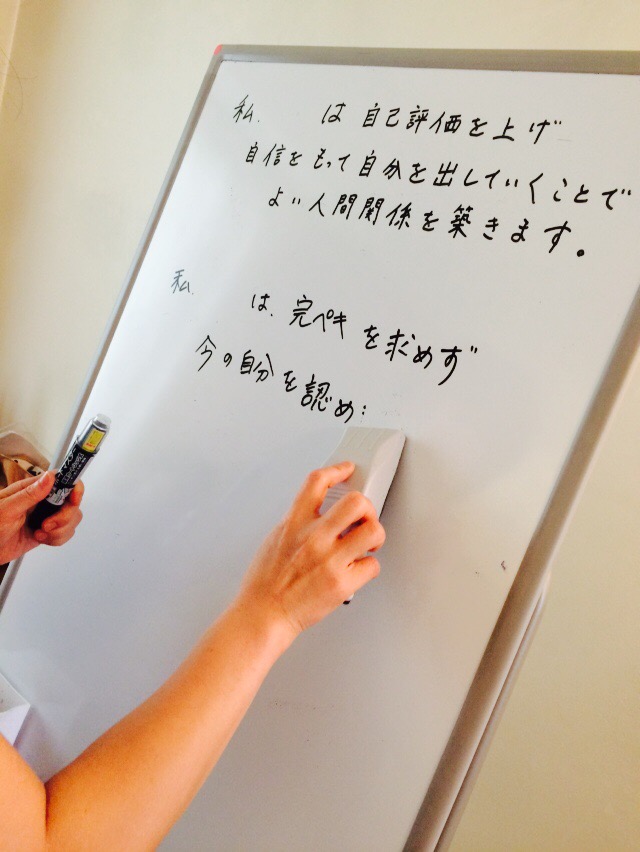 私 は 自己評価を上げ
自信をもって自分を出していくことで
よい人間関係を築きます。
私 は 完ペキを求めず
今の自分を認め